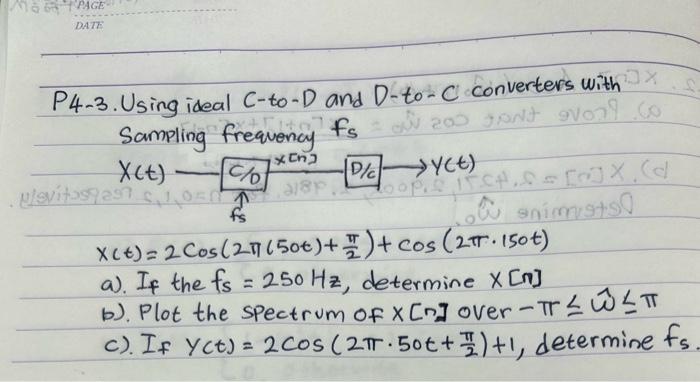 PAGE
DATE
P4-3. Using ideal C-to-D and D-to-C converters with
Sampling frequency fs
X(t) → C/D X[n] D/C → Y(t)
fs
X(t) = 2 Cos(2π(50t) + π/2) + cos(2π·150t)
a). If the fs = 250 Hz, determine X[n]
b). Plot the spectrum of X[n] over -π ≤ ŵ ≤ π
c). If Y(t) = 2 cos(2π·50t + π/2) + 1, determine fs.